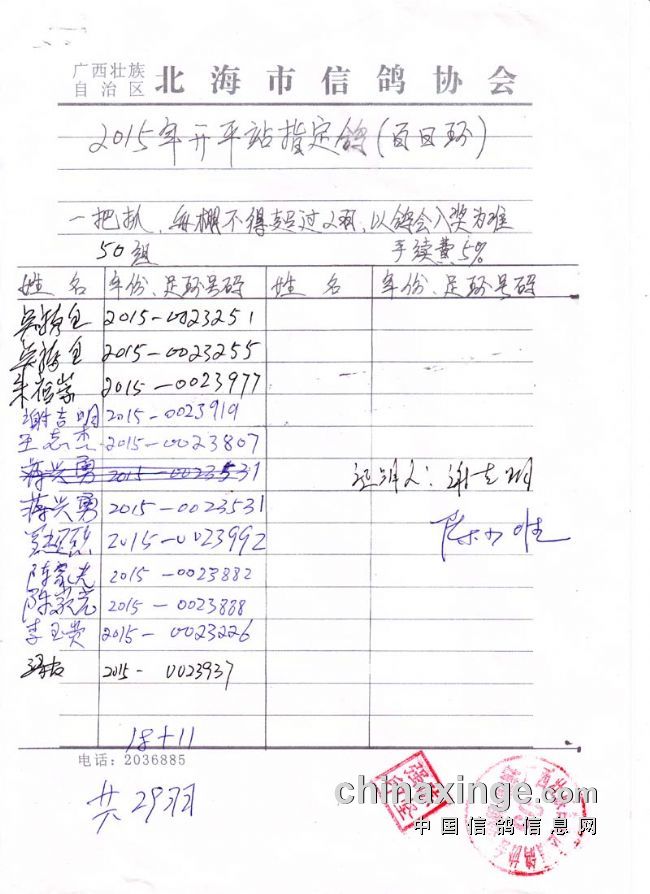 广西壮族
自治区 北海市信鸽协会
2015年开平站指定鸽(百日环)
一把扒，每棚不得超过2羽，以鸽会入奖为准
50组 手续费5%
姓名 年份、足环号码 姓名 年份、足环号码
2015-0023251
2015-0023255
2015-0023977
谢吉明 2015-0023919
王志杰 2015-0023807
蒋兴勇 2015-0023531
蒋兴勇 2015-0023531
2015-0023992
陈家光 2015-0023882
陈家亮 2015-0023888
李玉贵 2015-0023226
2015-0023937
证明人：谢吉明
18+11
电话：2036885
共29羽
chinaxinge.com
中国信鸽信息网